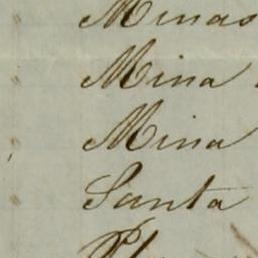 Minas
Mina
Mina
Santa